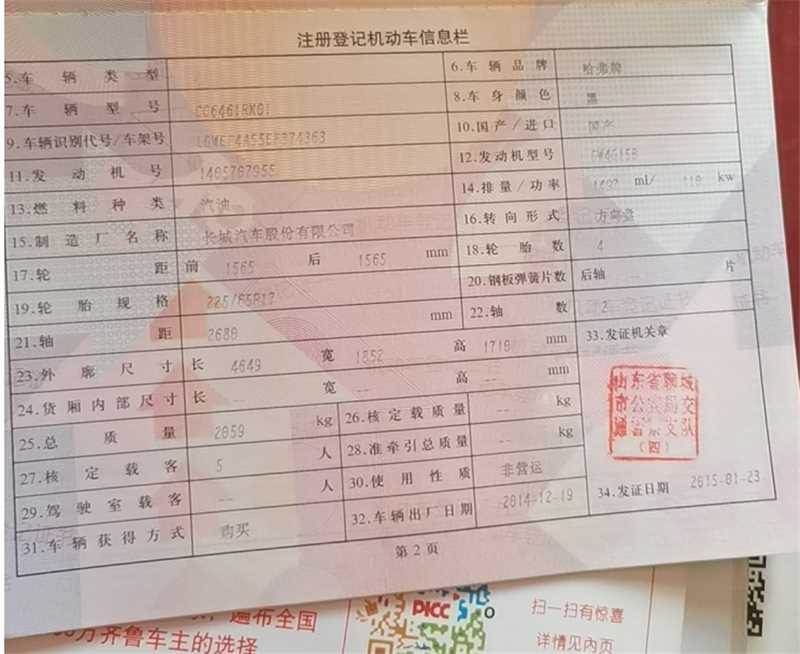 注册登记机动车信息栏
5.车辆类型 6.车辆品牌 哈弗牌
7.车辆型号 CC6461RK01 8.车身颜色 黑
9.车辆识别代号/车架号 10.国产/进口 国产
11.发动机号 12.发动机型号
13.燃料种类 汽油 14.排量/功率 1497 ml/ 110 kw
15.制造厂名称 长城汽车股份有限公司 16.转向形式 方向盘
17.轮距 前 1565 后 1565 mm 18.轮胎数 4
19.轮胎规格 225/65R17 20.钢板弹簧片数 后轴 -- 片
21.轴距 2680 mm 22.轴数 2
23.外廓尺寸 长 4649 宽 1852 高 1710 mm 33.发证机关章
24.货厢内部尺寸 长 -- 宽 -- 高 -- mm
山东省聊城
市公安局交
通警察支队
(四)
25.总质量 2059 kg 26.核定载质量 -- kg
27.核定载客 5 人 28.准牵引总质量 -- kg
29.驾驶室载客 -- 人 30.使用性质 非营运
31.车辆获得方式 购买 32.车辆出厂日期 2014-12-19 34.发证日期 2015-01-23
第2页
遍布全国
万齐鲁车主的选择
PICC
扫一扫有惊喜
详情见内页